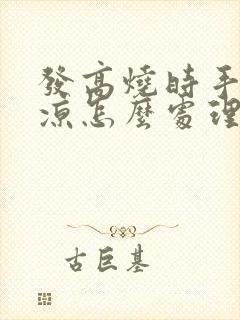 發高燒時手
涼怎麼處理
古巨基